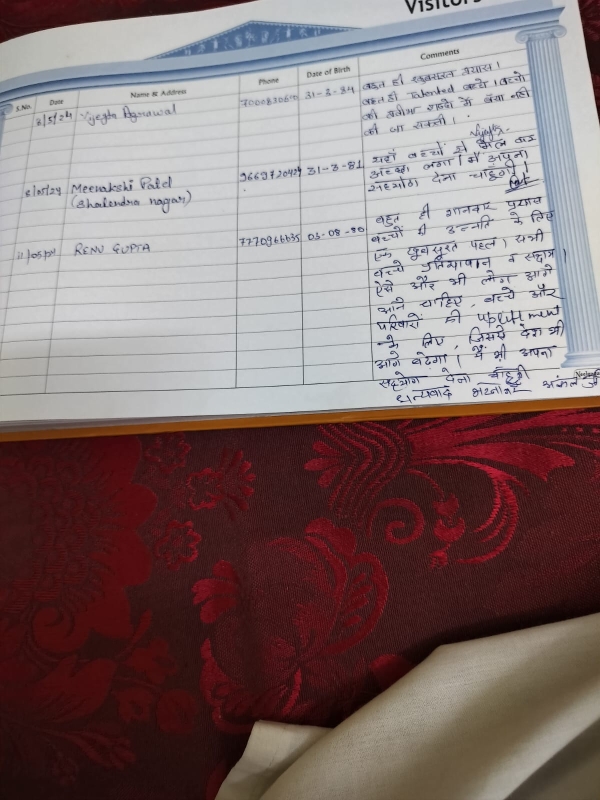 Visitors
S.No. Date Name & Address Phone Date of Birth Comments
8/5/24 Agrawal 31-3-84 बहुत ही खूबसूरत प्रयास।
बहुत ही Talented बच्चे। बच्चों
की तारीफ शब्दों में बयां नहीं
की जा सकती।
8/05/24 Meenakshi Patel 9669720424 31-3-81 यहाँ बच्चों से मिल कर
(Shailendra nagar) अच्छा लगा। मैं अपना
सहयोग देना चाहूंगी।
11/05/24 RENU GUPTA 7770966635 03-08-80 बहुत ही शानदार प्रयास
बच्चों की उन्नति के लिए
एक खूबसूरत पहल। सभी
बच्चे प्रतिभावान व
ऐसे और भी लोग आगे
आने चाहिए, बच्चे और
परिवारों की upliftment
के लिए, जिससे देश भी
आगे बढ़ेगा। मैं भी अपना
सहयोग देना चाहूंगी
धन्यवाद अंकल जी